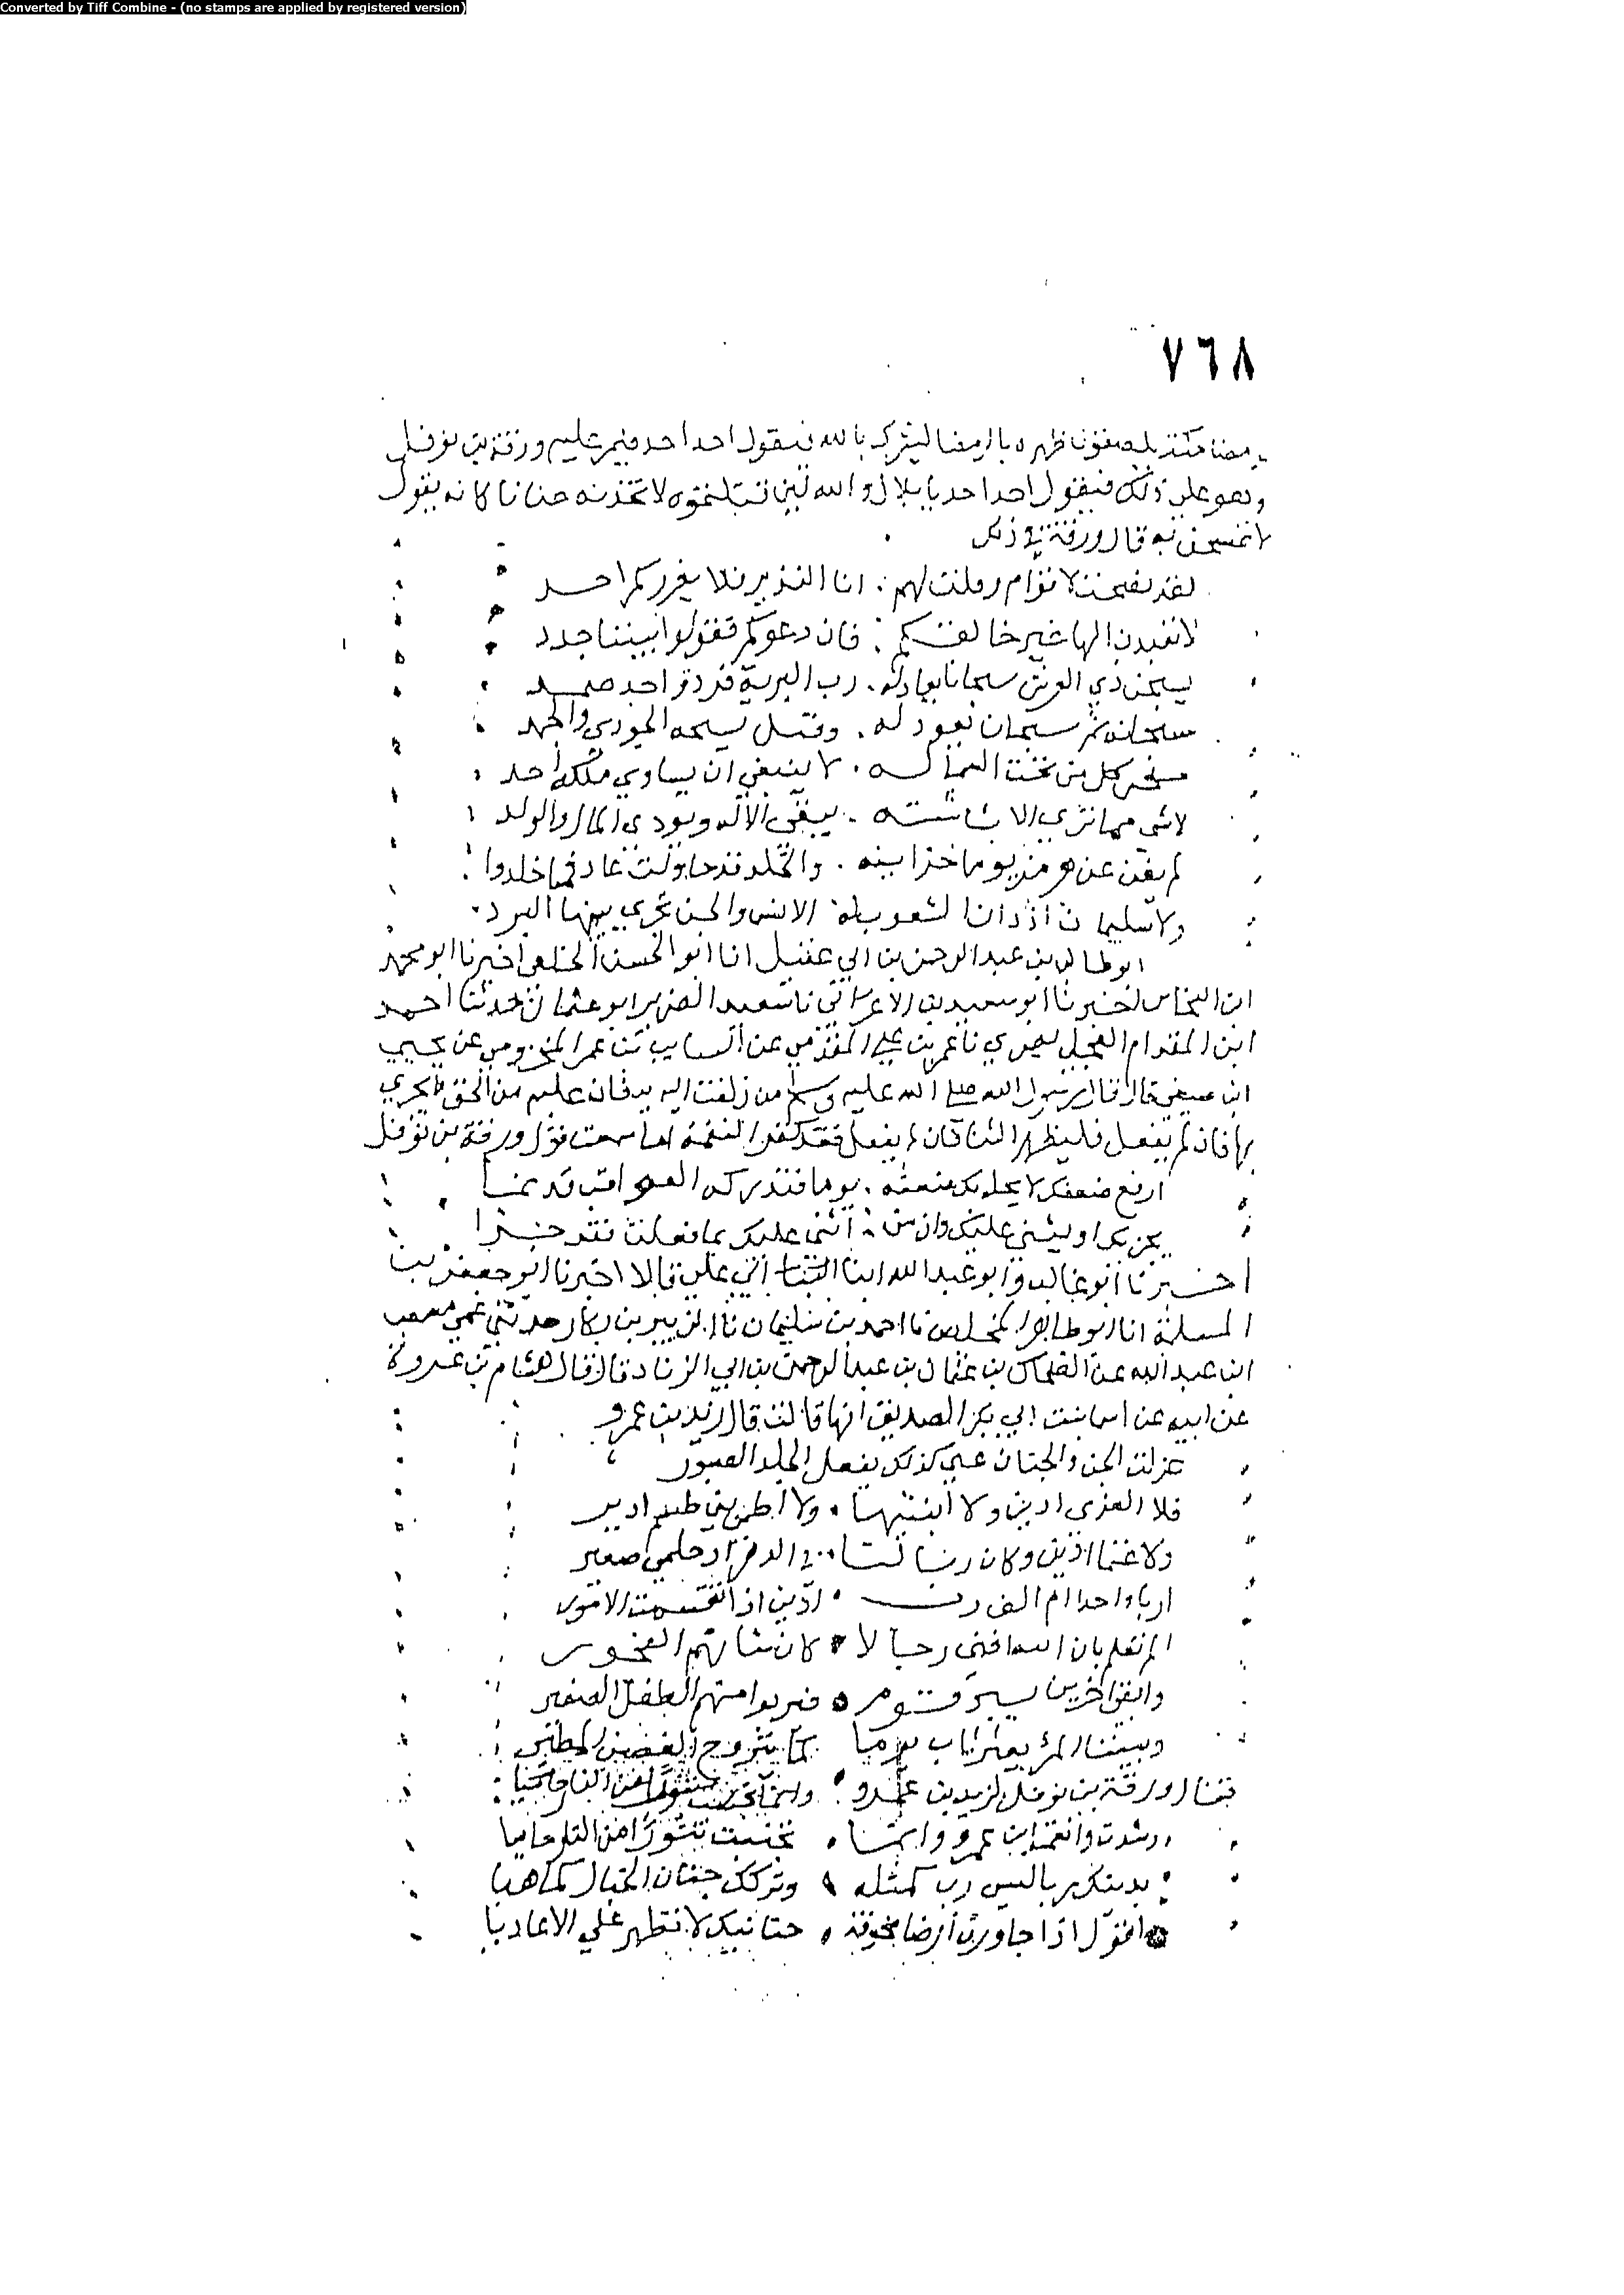 Converted by Tiff Combine - (no stamps are applied by registered version)
٧٦٨
برمضا مكة يلصقون ظهره بالرمضا ليشرك بالله فيقول احد احد فيمر عليه ورقة بن نوفل
وهو على ذلك فيقول احد احد يا بلال والله لين قتلتموه لاتخذنه حنانا كانه يقول
لاتمسحن به قال ورقة في ذلك
لقد نصحت لاقوام وقلت لهم : انا النذير فلا يغرركم احد
لا تعبدن الها غير خالقكم : فان دعوكم فقولوا بيننا جدد
سبحن ذي العرش سبحانا يعادله . رب البرية فرد واحد صمد
سبحانه ثم سبحان نعود له . وقبل سبحه الجودي والجمد
مسخر كل من تحت السما له . لا ينبغي ان يساوي ملكه احد
لا شي مما ترى الا بشاشته . يبقى الاله ويودي المال والولد
لم يغن عن هرمز يوما خزاينه . والخلد قد حاولت عاد فما خلدوا
ولا سليمان اذ دان الشعوب له الانس والجن تجري بينها البرد
ابو طالب بن عبد الرحمن بن ابي عقيل انا ابو الحسن الخلعي اخبرنا ابو محمد
ابن النحاس اخبرنا ابو سعيد بن الاعرابي نا سعيد الضرير ابو عثمان حدثنا احمد
ابن المقدام العجلي البصري نا عمر بن علي المقدمي عن السايب بن عمر المخزومي عن يحيى
ابن صيفي قال قال رسول الله صلى الله عليه وسلم من زلفت اليه يد فان عليه من الحق ان يجزي
بها فان لم يفعل فليظهر الثنا فان لم يفعل فقد كفر النعمة اما سمعت قول ورقة بن نوفل
ارفع ضعيفك لا يحل بك ضعفه . يوما فتدركه العواقب قد نما
يجزيك او يثني عليك وان من : اثنى عليك بما فعلت فقد جزا
اخبرنا ابو غالب وابو عبد الله ابنا البنا ابي علي قالا اخبرنا ابو جعفر بن
المسلمة انا ابو طاهر المخلص نا احمد بن سليمان نا الزبير بن بكار حدثني عمي مصعب
ابن عبد الله عن الضحاك بن عثمان بن عبد الرحمن بن ابي الزناد قال قال هشام بن عروة
عن ابيه عن اسما بنت ابي بكر الصديق انها قالت قال زيد بن عمرو
عزلت الجن والجنان عني كذلك يفعل الجلد الصبور
فلا العزى ادين ولا ابنتيها . ولا اطمي بني طسم ادير
ولا غنما ادين وكان ربا لنا .. في الدهر اذ حلمي صغير
اربا واحدا ام الف رب . ادين اذا تقسمت الامور
الم تعلم بان الله افنى رجالا . كان شانهم الفجور
وابقى اخرين ببر قوم . فيربوا منهم الطفل الصغير
وبينا المرؤ يعثر ثاب يوما كما يتروح الغصن المطير
فقال ورقة بن نوفل لزيد بن عمرو :
رشدت وانعمت ابن عمرو وانما . تجنبت تنورا من النار حاميا
بدينك ربا ليس رب كمثله . وتركك جنان الجبال كما هيا
اقول اذا جاوزت ارضا مخوفة . حنانيك لا تظهر علي الاعاديا